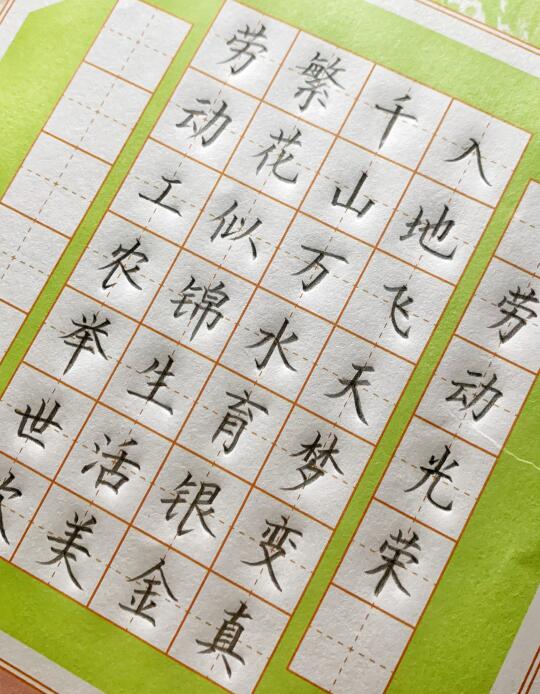 劳动光荣
入地飞天梦变真
千山万水育银金
繁花似锦生活美
劳动工农举世